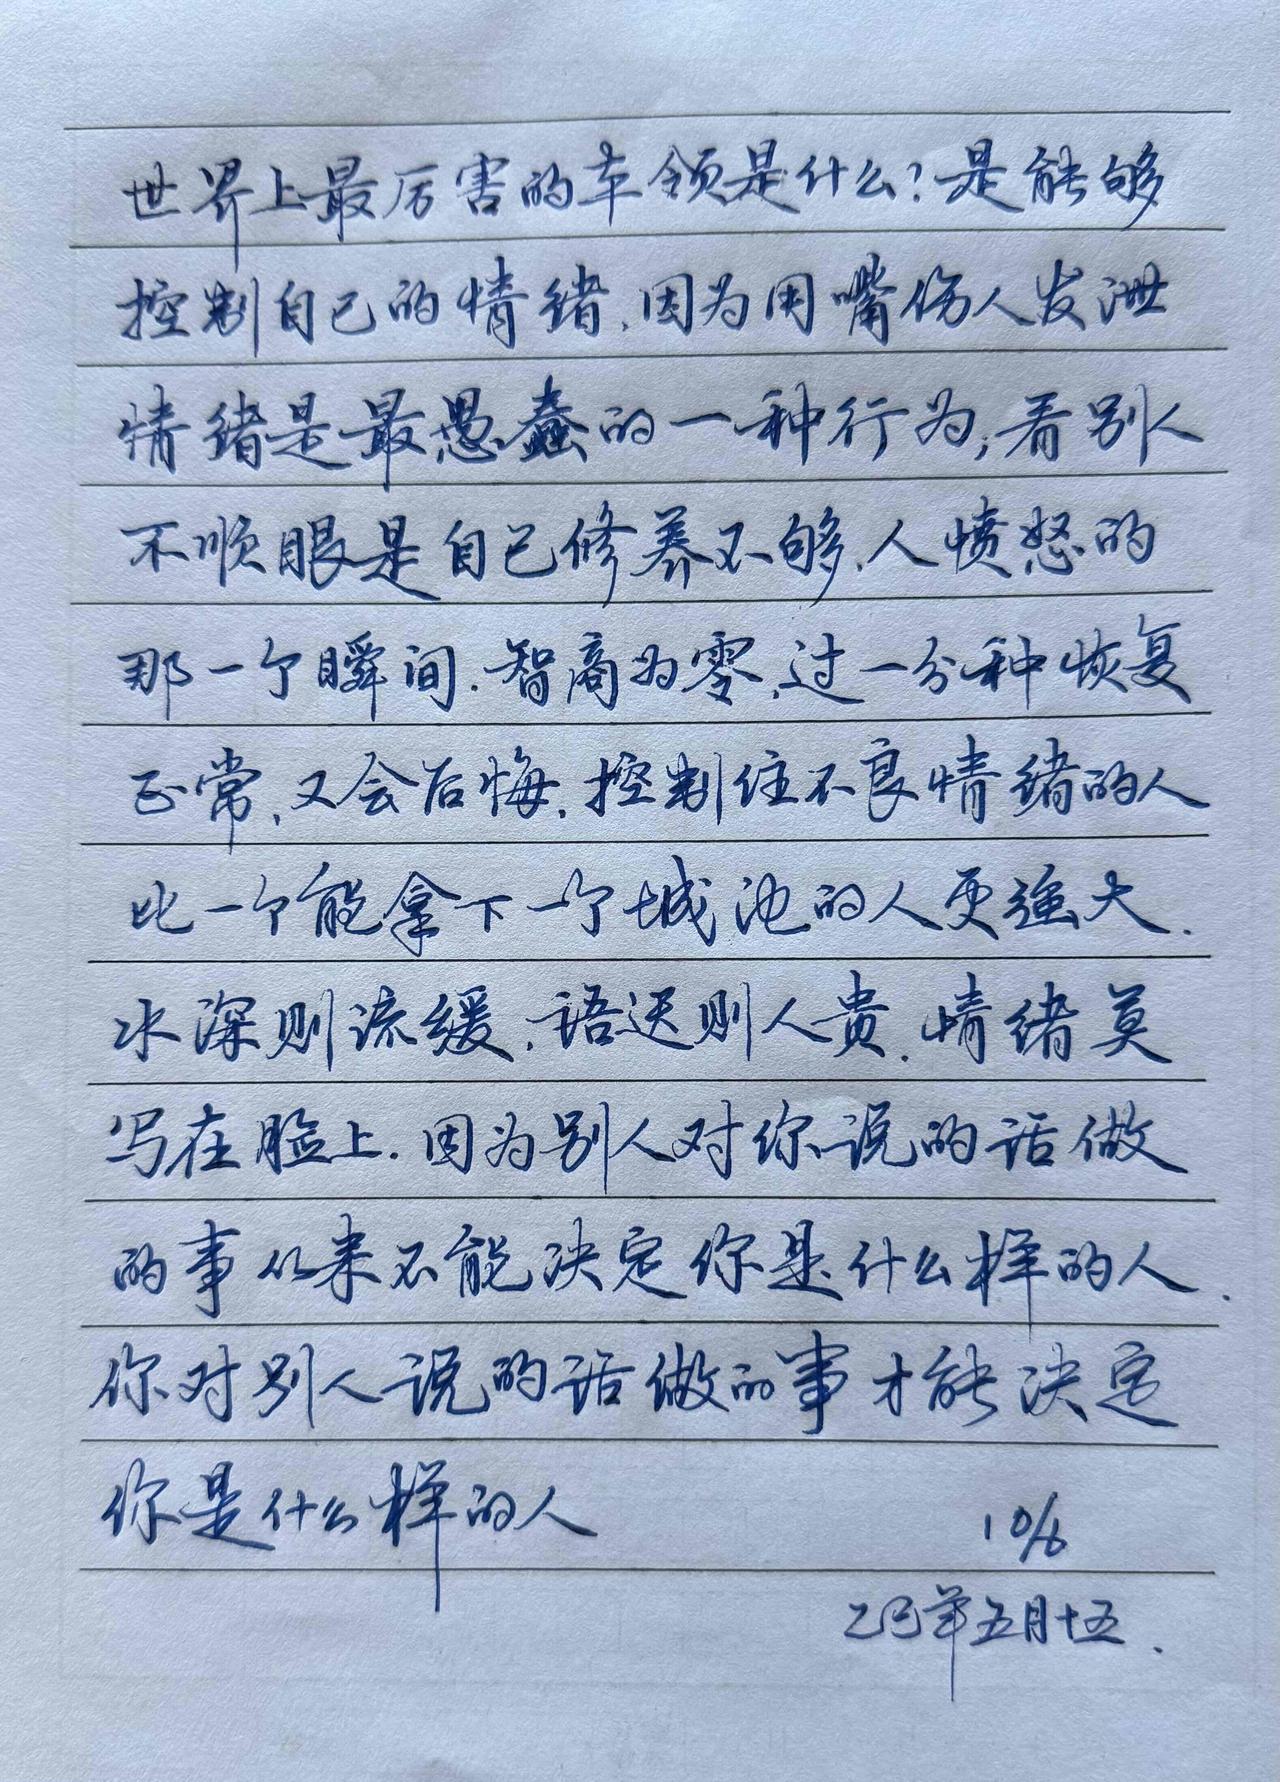 世界上最厉害的本领是什么?是能够
控制自己的情绪.因为用嘴伤人发泄
情绪是最愚蠢的一种行为,看别人
不顺眼是自己修养不够.人愤怒的
那一个瞬间.智商为零,过一分种恢复
正常,又会后悔.控制住不良情绪的人
比一个能拿下一个城池的人更強大.
水深则流缓.语迟则人贵.情绪莫
写在脸上.因为别人对你说的话做
的事从来不能决定你是什么样的人.
你对别人说的话做的事才能决定
你是什么样的人
10/6
乙巳年五月十五.